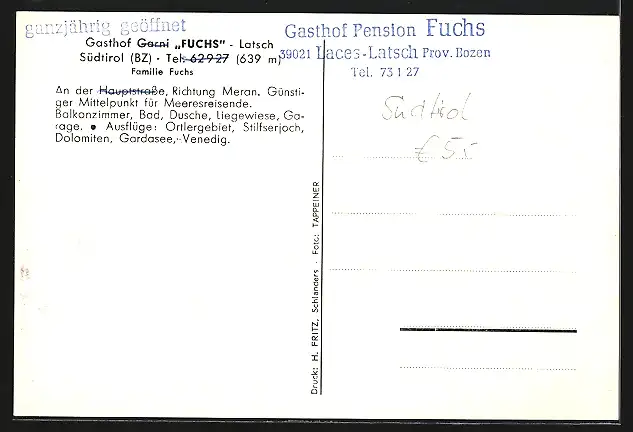 ganzjährig geöffnet
Gasthof Garni „FUCHS" - Latsch
Südtirol (BZ) · Tel. 62927 (639 m)
Familie Fuchs
An der Hauptstraße, Richtung Meran. Günsti-
ger Mittelpunkt für Meeresreisende.
Balkonzimmer, Bad, Dusche, Liegewiese, Ga-
rage. ● Ausflüge: Ortlergebiet, Stilfserjoch,
Dolomiten, Gardasee, Venedig.
Gasthof Pension Fuchs
39021 Laces-Latsch Prov. Bozen
Tel. 73 1 27
Südtirol
€ 55
Druck: H. FRITZ, Schlanders · Foto: TAPPEINER